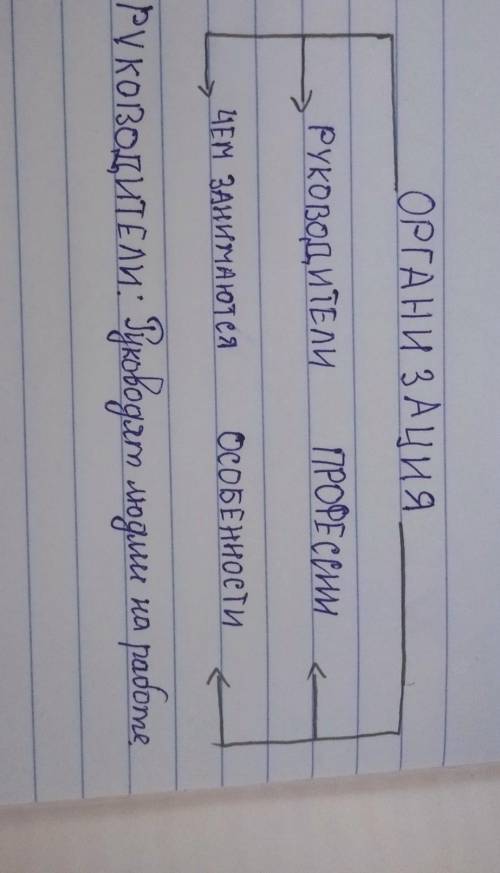 ОРГАНИЗАЦИЯ
РУКОВОДИТЕЛИ ПРОФЕССИИ
ЧЕМ ЗАНИМАЮТСЯ ОСОБЕННОСТИ
РУКОВОДИТЕЛИ: Руководят людьми на работе.